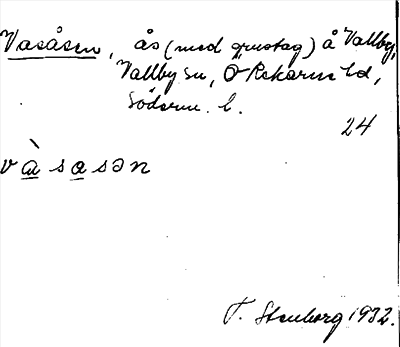 Vasåsen, ås (med grustag) å Vallby,
Vallby sn, Ö Rekarne hd,
Söderm. l.
24
v à s a sən
T. Stenborg 1932.